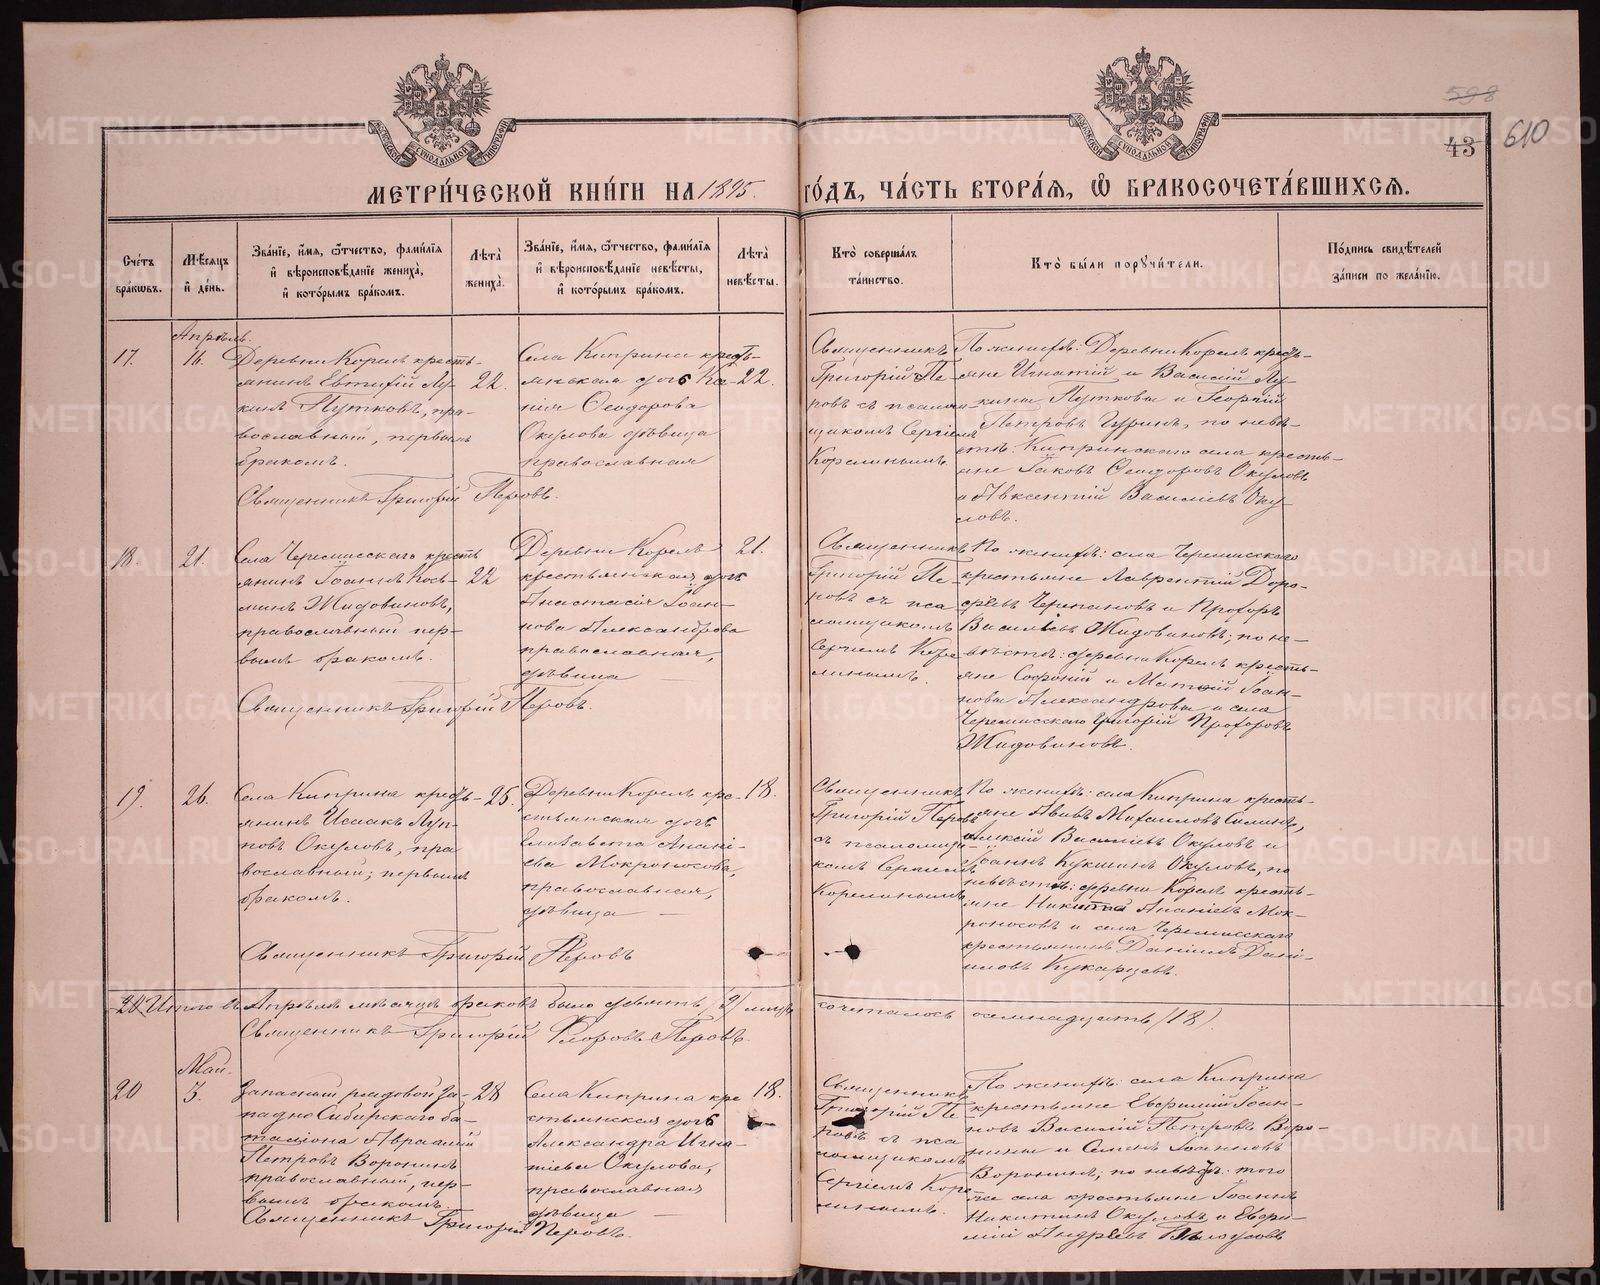 598
43
610
МЕТРИЧЕСКОЙ КНИГИ НА 1895 ГОДЪ, ЧАСТЬ ВТОРАЯ, Ѿ БРАКОСОЧЕТАВШИХСЯ.
Счетъ браковъ.
Мѣсяцъ и день.
Званіе, имя, ѿчество, фамилія
и вѣроисповѣданіе жениха,
и которымъ бракомъ.
Лѣта жениха.
Званіе, имя, ѿчество, фамилія
и вѣроисповѣданіе невѣсты,
и которымъ бракомъ.
Лѣта невѣсты.
Кто совершалъ
таинство.
Кто были поручители.
Подпись свидѣтелей
записи по желанію.
17.
Апрѣль.
16.
Деревни Корелъ кресть-
янинъ Евтихій Лу-
кинъ Путковъ, пра-
вославный, первымъ
бракомъ.
22.
Села Киприна кресть-
янская дочь Ксе-
нія Ѳеодорова
Окулова дѣвица
православная
22.
Священникъ
Григорій Пе-
ровъ съ псалом-
щикомъ Сергіемъ
Корелинымъ.
По женихѣ: Деревни Корелъ кресть-
яне Игнатій и Василій Лу-
кины Путковы и Георгій
Петровъ Гуринъ, по невѣ-
стѣ: Кипринскаго села кресть-
яне Іаковъ Ѳеодоровъ Окуловъ
и Авксентій Васильевъ Оку-
ловъ.
Священникъ Григорій Перовъ.
18.
21.
Села Черемисскаго кресть
янинъ Іоаннъ Кось-
минъ Жидовиновъ,
православный пер-
вымъ бракомъ.
22
Деревни Корелъ
крестьянская дочь
Анастасія Іоан-
нова Александрова
православная,
дѣвица
21.
Священникъ
Григорій Пе-
ровъ съ пса
ломщикомъ
Сергіемъ Коре
линымъ.
По женихѣ: села Черемисскаго
крестьяне Лаврентій Доро-
феевъ Черепановъ и Прохоръ
Васильевъ Жидовиновъ; по не-
вѣстѣ: деревни Корелъ кресть-
яне Софоній и Матѳій Іоан-
новы Александровы и села
Черемисскаго Григорій Прохоровъ
Жидовиновъ.
Священникъ Григорій Перовъ.
19.
26.
Села Киприна кресть-
янинъ Исаакъ Луп-
повъ Окуловъ, пра
вославный; первымъ
бракомъ.
25.
Деревни Корелъ кре-
стьянская дочь
Елизавета Анані-
ева Мокроносова,
православная,
дѣвица
18.
Священникъ
Григорій Перовъ
съ псаломщи-
комъ Сергіемъ
Корелинымъ
По женихѣ: села Киприна кресть-
яне Авивъ Михаиловъ Силинъ,
Алексій Васильевъ Окуловъ и
Іоаннъ Окуловъ, по
невѣстѣ: деревни Корелъ кресть-
яне Никита Ананіевъ Мок-
роносовъ и села Черемисскаго
крестьянинъ Даніилъ Дані-
иловъ Кукарцевъ.
Священникъ Григорій Перовъ
20 Итого въ Апрѣлѣ мѣсяцѣ браковъ было девять (9) лицъ сочеталось осемнадцать (18).
Священникъ Григорій Флоровъ Перовъ.
20
Май.
3.
Запасный рядовой За-
падно Сибирскаго ба-
таліона Авраамій
Петровъ Воронинъ
православный, пер-
вымъ бракомъ.
28
Села Киприна кре
стьянская дочь
Александра Игна-
тіева Окулова,
православная
дѣвица
18.
Священникъ
Григорій Пе-
ровъ съ пса
ломщикомъ
Сергіемъ Коре-
линымъ.
По женихѣ: села Киприна
крестьяне Евфимій Іоан-
новъ Василій Петровъ Воро-
нины и Семенъ Іоанновъ
Воронинъ, по невѣстѣ: того
же села крестьяне Іоаннъ
Никитинъ Окуловъ и Евфи-
мій Андреевъ Бѣлоусовъ
Священникъ Григорій Перовъ.
METRIKI.GASO-URAL.RU